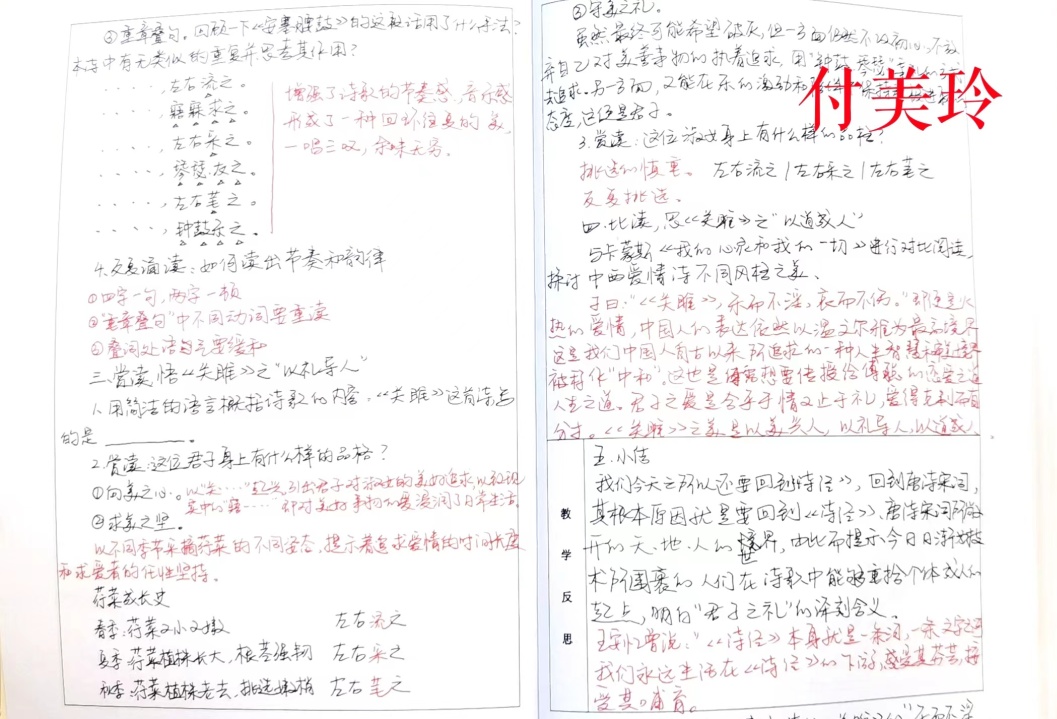 ③重章叠句。回顾一下《安塞腰鼓》的这段话用了什么手法?
本诗中有无类似的重复并思考其作用?
····,左右流之。
····,寤寐求之。
····,左右采之。
····,琴瑟友之。
····,左右芼之。
····,钟鼓乐之。
增强了诗歌的节奏感,音乐感
形成了一种回环往复的美,
一唱三叹,余味无穷。
4.反复诵读:如何读出节奏和韵律
①四字一句,两字一顿
②"重章叠句"中不同动词要重读
③叠词处语气要缓和
三、赏读,悟《关雎》之"以礼导人"
1.用简洁的语言概括诗歌的内容。《关雎》这首诗写
的是________。
2.赏读:这位君子身上有什么样的品格?
①向美之心。以"关……"起兴,引出君子对淑女的美好追求,以和现
实中的"寤……"即对美好事物的爱浸润了日常生活。
②求美之坚。
以不同季节采摘荇菜的不同姿态,提示着追求爱情的时间长度
和求爱者的任性坚持。
荇菜成长史
春季:荇菜又小又嫩 左右流之
夏季:荇菜植株长大,根茎强韧 左右采之
秋季:荇菜植株老去,挑选嫩梢 左右芼之
③守美之礼。
虽然最终可能希望破灭,但一方面仍然不改初心,不放
弃自己对美善事物的执着追求,用"钟鼓""琴瑟"
去追求。另一方面,又能在乐的激动和
态度,这便是君子。
付美玲
3.赏读:这位淑女身上有什么样的品格?
挑选的慎重。 左右流之/左右采之/左右芼之
反复挑选。
四、比读,思《关雎》之"以道成人"
与卡蒙斯《我的心永和我的一切》进行对比阅读,
探讨中西爱情诗不同风格之美、
子曰:"《关雎》,乐而不淫,哀而不伤。"即便是火
热的爱情,中国人的表达依然以温文尔雅为最高境界
这是我们中国人自古以来所追捧的一种人生智慧和
被称作"中和"。这也是 想要传授给 的恋爱之道
人生之道。君子之爱是合乎于情又止于礼,爱得克制而有
分寸。《关雎》之美是以美兴人,以礼导人,以道成人
教学反思
五.小结
我们今天之所以还要回到《诗经》,回到唐诗宋词,
其根本原因就是要回到《诗经》、唐诗宋词所敞
开的天、地、人的世界,由此而提示今日日渐被技
术所围裹的人们在诗歌中能够重拾个体成人的
起点,明白"君子之礼"的深刻含义。
王安忆曾说:"《诗经》本身就是一条河,一条文字之河
我们永远生活在《诗经》的下游,感受其芬芳,接
受其哺育。